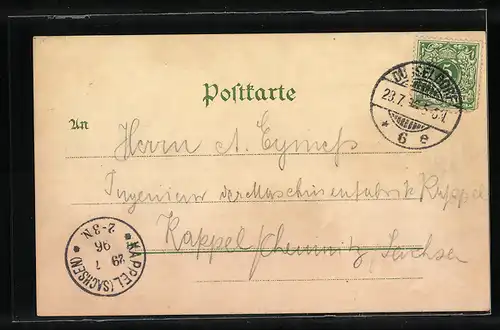 Postkarte
DÜSSELDORF
23.7.
* 6 e
An
Herrn A.
Ingenieur der Maschinenfabrik Kappel
Kappel/Chemnitz, Sachsen
* KAPPEL (SACHSEN) *
29 7
96
2-3N.